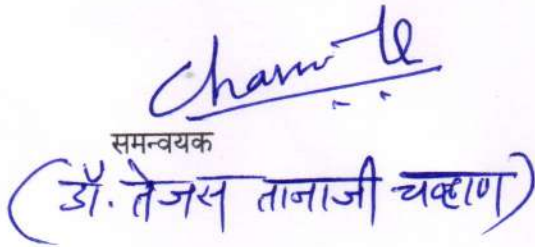 समन्वयक
(डॉ. तेजस तानाजी चव्हाण)